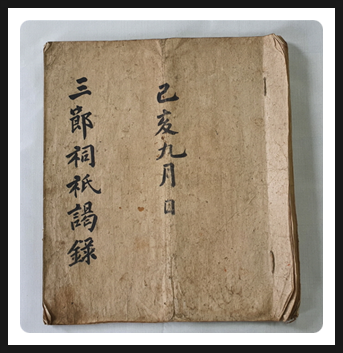 己亥九月日
三節祠祇謁錄